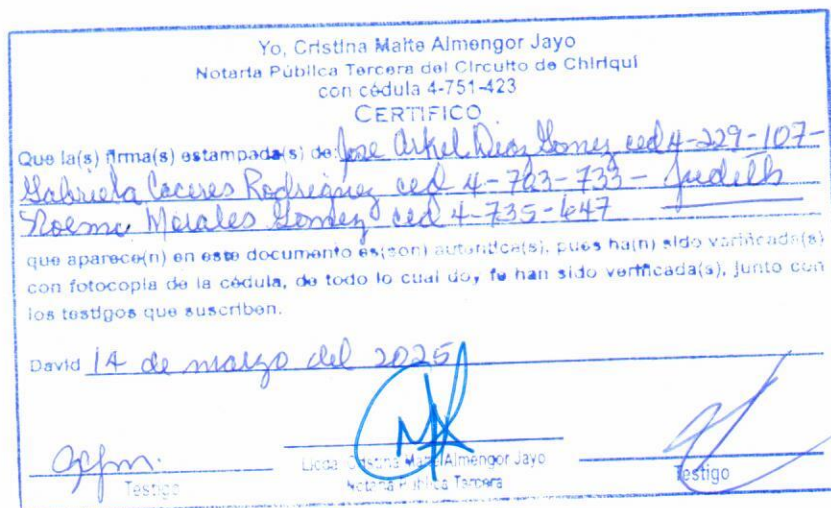 Yo, Cristina Maite Almengor Jayo
Notaria Pública Tercera del Circuito de Chiriquí
con cédula 4-751-423
CERTIFICO
Que la(s) firma(s) estampada(s) de: Jose Arkel Diaz Gomez ced 4-229-107-
Gabriela Caceres Rodriguez ced 4-763-733- Judith
Noemi Morales Gomez ced 4-735-647
que aparece(n) en este documento es(son) autentica(s), pues ha(n) sido verificada(s)
con fotocopia de la cédula, de todo lo cual doy fe han sido verificada(s), junto con
los testigos que suscriben.
David 14 de marzo del 2025
Testigo
Licda. Cristina Maite Almengor Jayo
Notaria Pública Tercera
Testigo